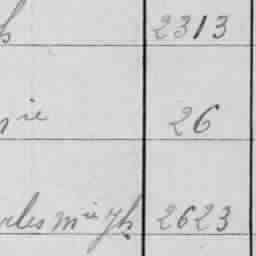 h 2313
ie 26
rles mie Jh 2623